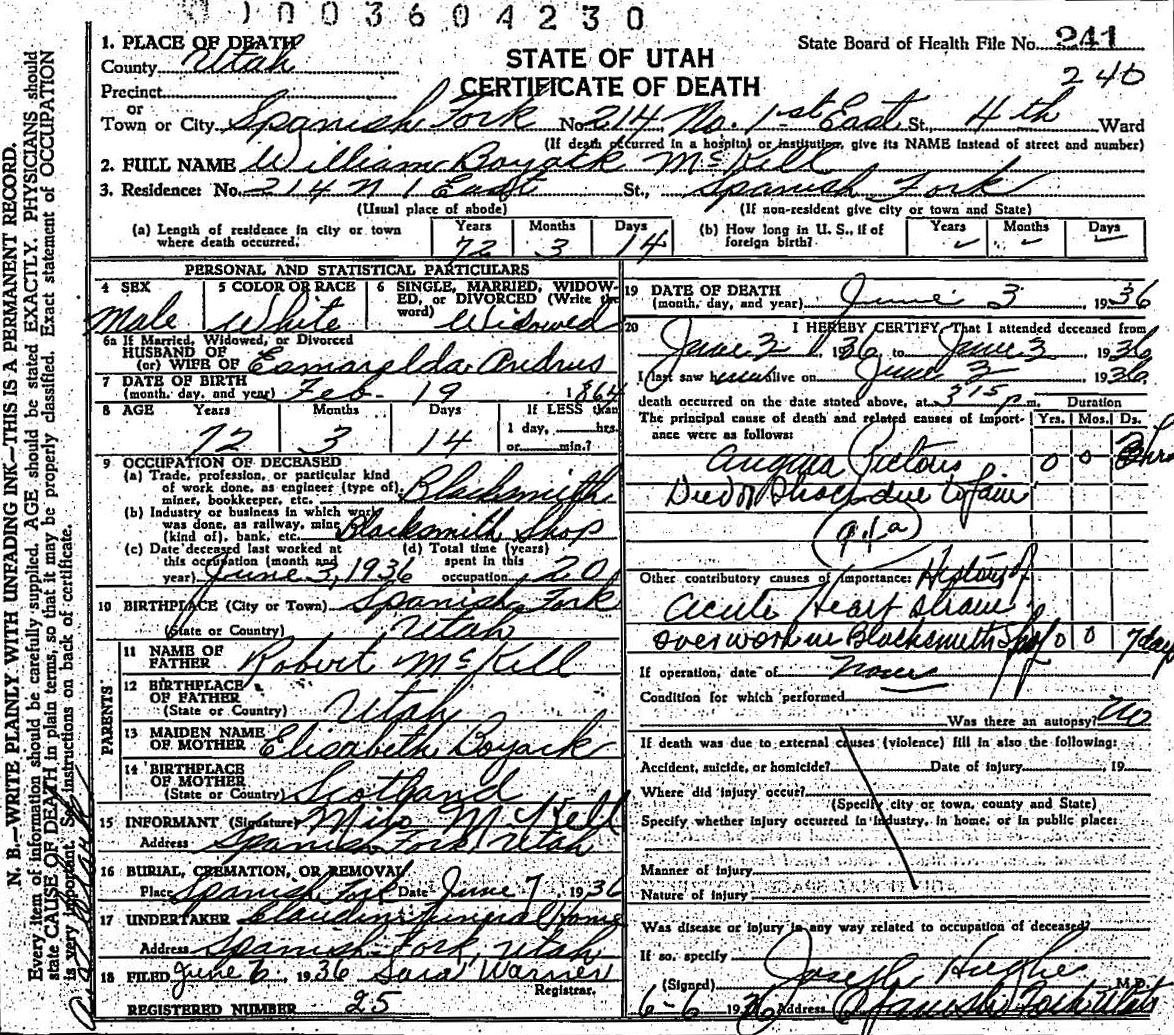 1003604230
N. B.—WRITE PLAINLY WITH UNFADING INK—THIS IS A PERMANENT RECORD.
Every item of information should be carefully supplied. AGE should be stated EXACTLY. PHYSICIANS should
state CAUSE OF DEATH in plain terms, so that it may be properly classified. Exact statement of OCCUPATION
is very important. See instructions on back of certificate.
STATE OF UTAH
CERTIFICATE OF DEATH
State Board of Health File No. 241
240
1. PLACE OF DEATH
County Utah
Precinct
or
Town or City Spanish Fork No. 214 No. 1st East St., 4th Ward
(If death occurred in a hospital or institution, give its NAME instead of street and number)
2. FULL NAME William Boyack McKell
3. Residence: No. 214 N 1 East St., Spanish Fork
(Usual place of abode) (If non-resident give city or town and State)
(a) Length of residence in city or town where death occurred. Years 72 Months 3 Days 14
(b) How long in U. S., if of foreign birth? Years Months Days
PERSONAL AND STATISTICAL PARTICULARS
4 SEX Male
5 COLOR OR RACE White
6 SINGLE, MARRIED, WIDOWED, or DIVORCED (Write the word) Widowed
6a If Married, Widowed, or Divorced
HUSBAND OF
(or) WIFE OF Esmarelda Andrus
7 DATE OF BIRTH
(month, day, and year) Feb - 19 1864
8 AGE Years 72 Months 3 Days 14 If LESS than
1 day, hrs.
or min.?
9 OCCUPATION OF DECEASED
(a) Trade, profession, or particular kind
of work done, as engineer (type of),
miner, bookkeeper, etc. Blacksmith
(b) Industry or business in which work
was done, as railway, mine
(kind of), bank, etc. Blacksmith Shop
(c) Date deceased last worked at
this occupation (month and
year) June 3, 1936
(d) Total time (years)
spent in this
occupation 20
10 BIRTHPLACE (City or Town) Spanish Fork
(State or Country) Utah
PARENTS
11 NAME OF
FATHER Robert McKell
12 BIRTHPLACE
OF FATHER
(State or Country) Utah
13 MAIDEN NAME
OF MOTHER Elisabeth Boyack
14 BIRTHPLACE
OF MOTHER
(State or Country) Scotland
15 INFORMANT (Signature) McKell
Address Spanish Fork, Utah
16 BURIAL, CREMATION, OR REMOVAL
Place Spanish Fork Date June 7 1936
17 UNDERTAKER Claudin Funeral Home
Address Spanish Fork, Utah
18 FILED June 6, 1936 Sara Warner
Registrar.
REGISTERED NUMBER 25
19 DATE OF DEATH
(month, day, and year) June 3 1936
20 I HEREBY CERTIFY, That I attended deceased from
June 3, 1936 to June 3, 1936
I last saw him alive on June 3 1936
death occurred on the date stated above, at 3 15 p m. Duration
The principal cause of death and related causes of importance were as follows: Yrs. Mos. Ds.
Angina Pectoris 0 0 hrs
Died of Shock due to pain
Other contributory causes of importance: History of
acute Heart strain
overwork in Blacksmith Shop 0 0 7 days
If operation, date of None
Condition for which performed
Was there an autopsy? No
If death was due to external causes (violence) fill in also the following:
Accident, suicide, or homicide? Date of injury , 19
Where did injury occur?
(Specify city or town, county and State)
Specify whether injury occurred in industry, in home, or in public place:
Manner of injury
Nature of injury
Was disease or injury in any way related to occupation of deceased?
If so, specify
(Signed) Joseph Hughes M.D.
6-6 1936 Address Spanish Fork Utah